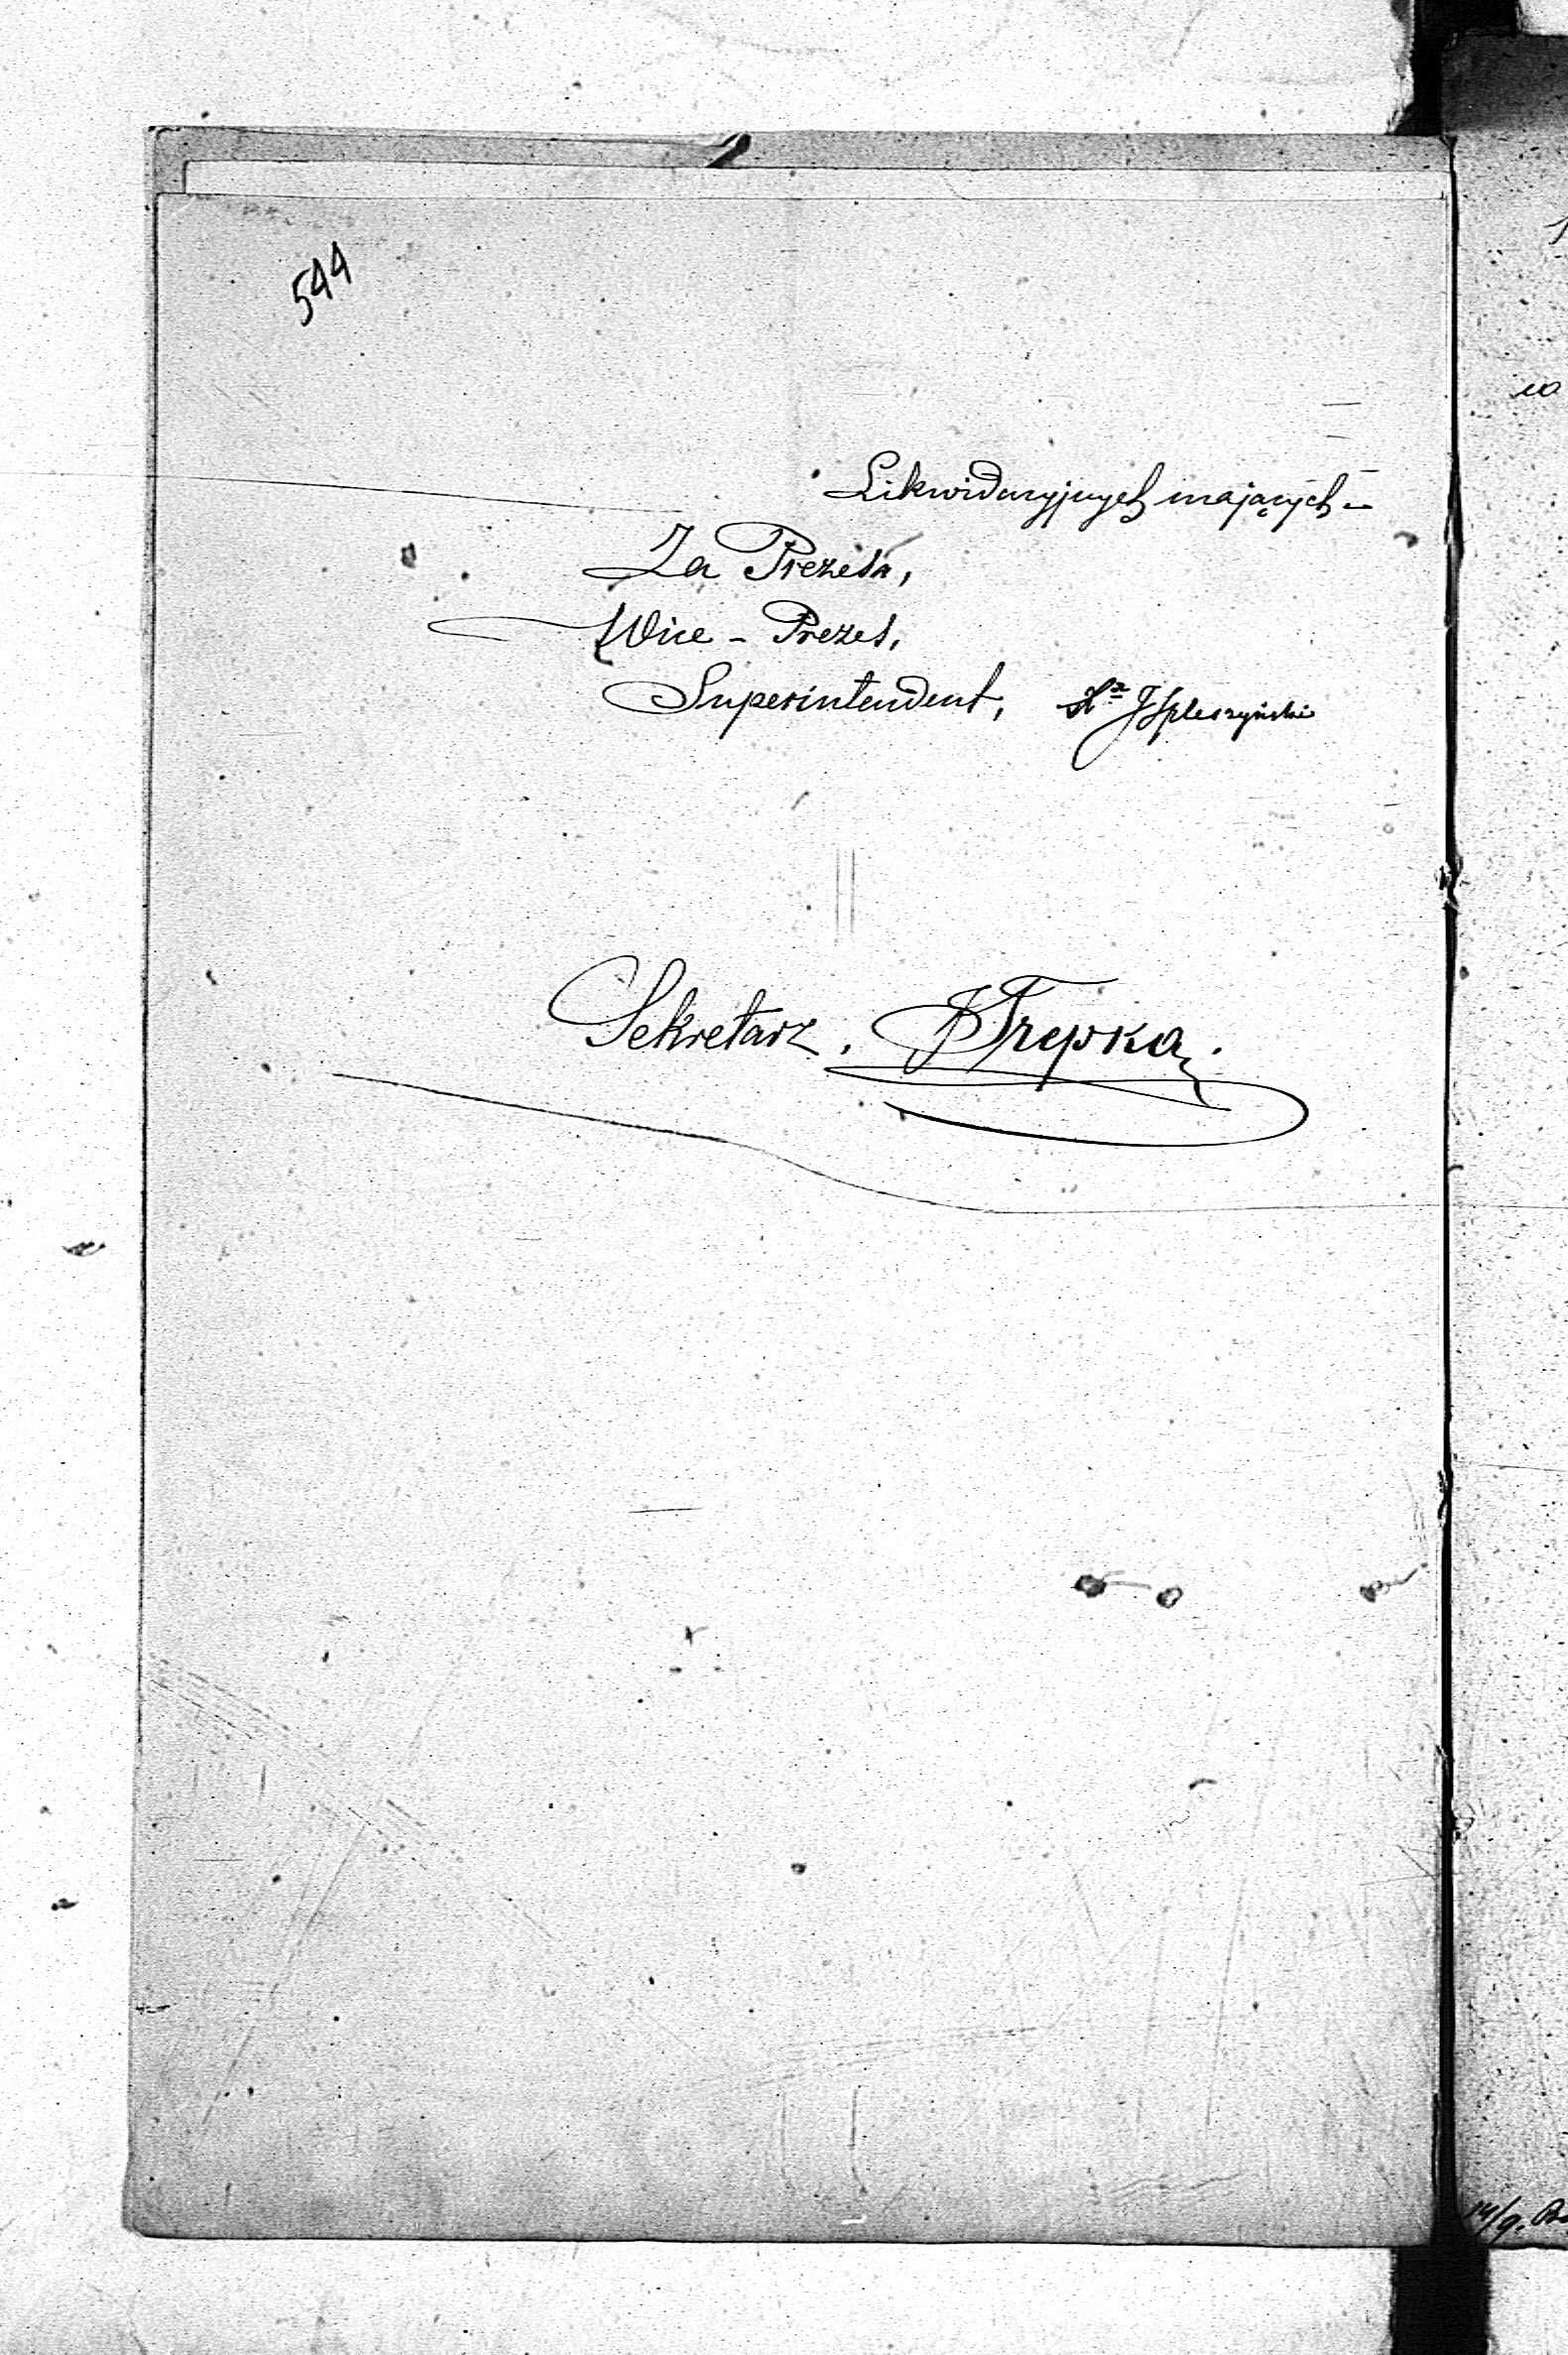 544
Likwidacyjnych mających –
Za Prezesa,
Wice – Prezes,
Superintendent,
Sekretarz. Trepka.